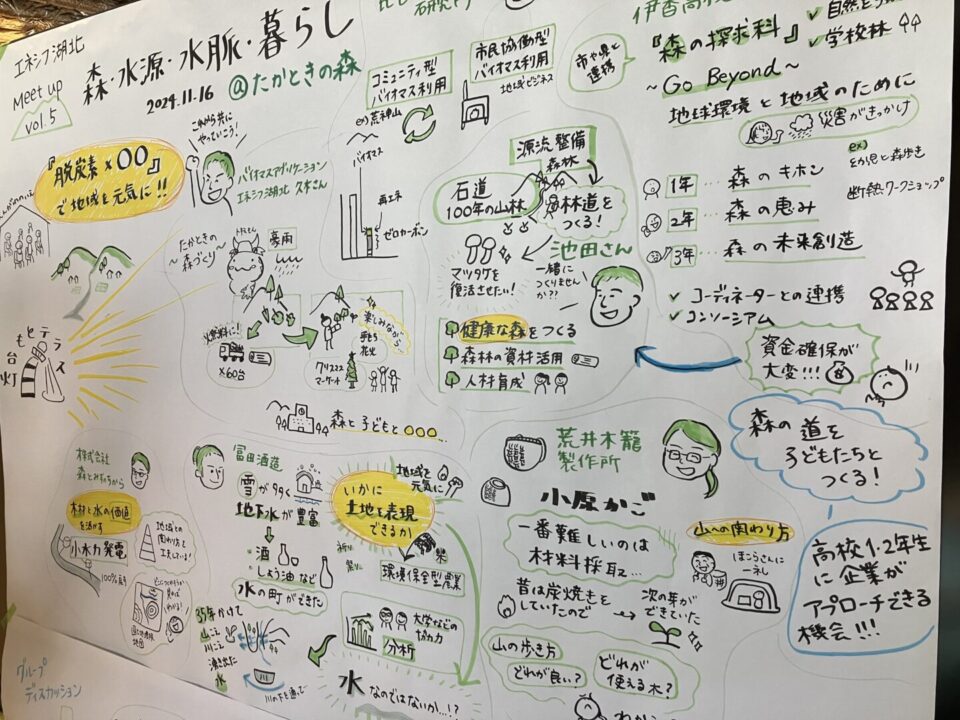 エネシフ湖北
Meet up
vol.5
森・水源・水脈・暮らし
2024.11.16
@たかときの森
『脱炭素×〇〇』
で地域を元気に!!
これから共に
やっていこう!
バイオマスアグリケーション
エネシフ湖北 久木さん
研究所
コミュニティ型
バイオマス利用
ex)荒神山
市民協働型
バイオマス利用
地域ビジネス
市や県と
連携
バイオマス
再エネ
ゼロカーボン
伊香高校
『森の探求科』
学校林
~Go Beyond~
地球環境と地域のために
災害がきっかけ
ex)
幼児と森歩き
断熱ワークショップ
1年…森のキホン
2年…森の恵み
3年…森の未来創造
コーディネーターとの連携
コンソーシアム
資金確保が
大変!!!
源流整備
森林
石道
100年の山林
林道を
つくる!
池田さん
マツタケを
復活させたい!
一緒に
つくりません
か??
健康な森をつくる
森林の資材活用
人材育成
たかときの
森づくり
豪雨
燃料に!
×60台
楽しみながら…
手もち
花火
クリスマス
マーケット
もとテラス
灯台
森と子どもと〇〇〇
株式会社
森とみずのちから
木材と水の価値
を活かす
小水力発電
100%
地域との
関わり方を
工夫している!
冨田酒造
雪が多く
地下水が豊富
・酒
・しょう油など
水の町ができた
35年かけて
山に
川に
湧き出た
水
川の下を通って…
地域を
元気に
いかに
土地を表現
できるか
祈り
祭り
環境保全型農業
大学などの
協力
分析
水なのではないか…!?
荒井木籠
製作所
小原かご
一番難しいのは
材料採取…
昔は炭焼きを
していたので
次の年が
できていた
山への関わり方
ほこらさんに
一礼
山の歩き方
どれが良い?
どれが
使える木?
森の道を
子どもたちと
つくる!
高校1・2年生
に企業が
アプローチできる
機会!!!
グループ
ディスカッション